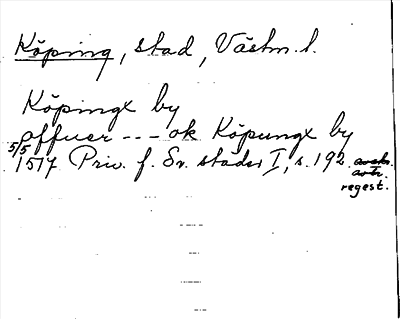 Köping, stad, Västm. l.
Köpingx by
offuer --- ok Köpungx by
5/5 1517 Priv. f. Sv. städer I, s. 192.
regest.